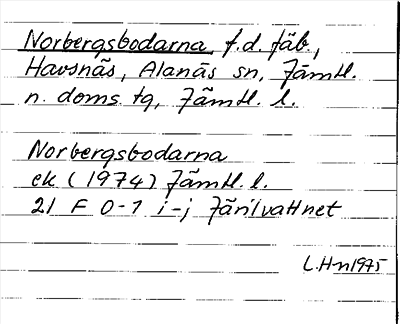 Norbergsbodarna f.d. fäb,
Havsnäs, Alanäs sn, Jämtl.
n. doms. tg, Jämtl. l.
Norbergsbodarna
ek (1974) Jämtl. l.
21 F 0-1 i-j Järilvattnet
L.Hn 1975